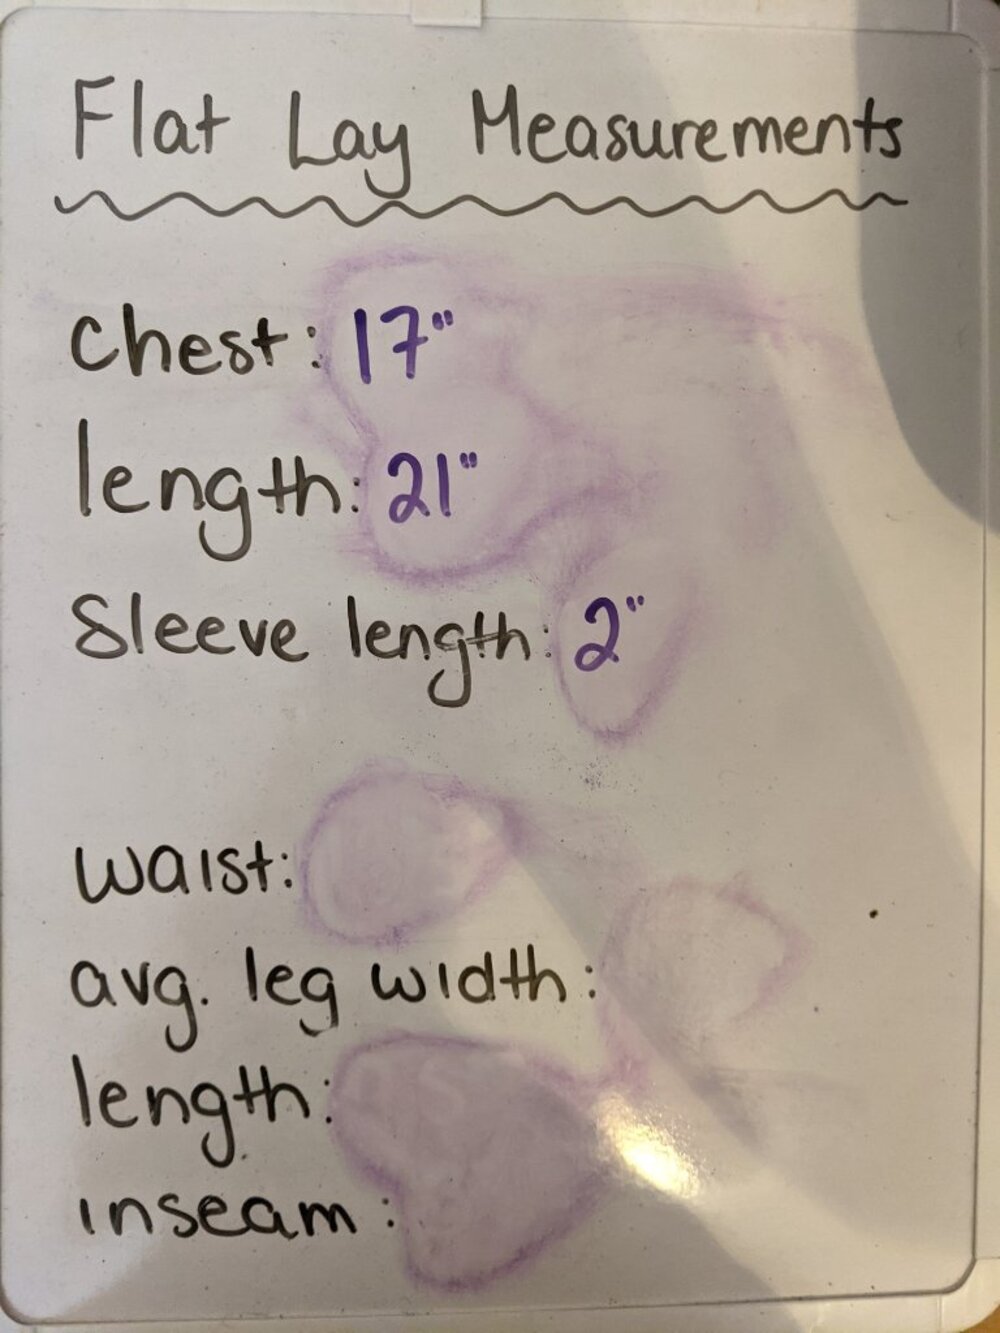 Flat Lay Measurements
chest: 17"
length: 21"
Sleeve length: 2"
waist:
avg. leg width:
length:
inseam: